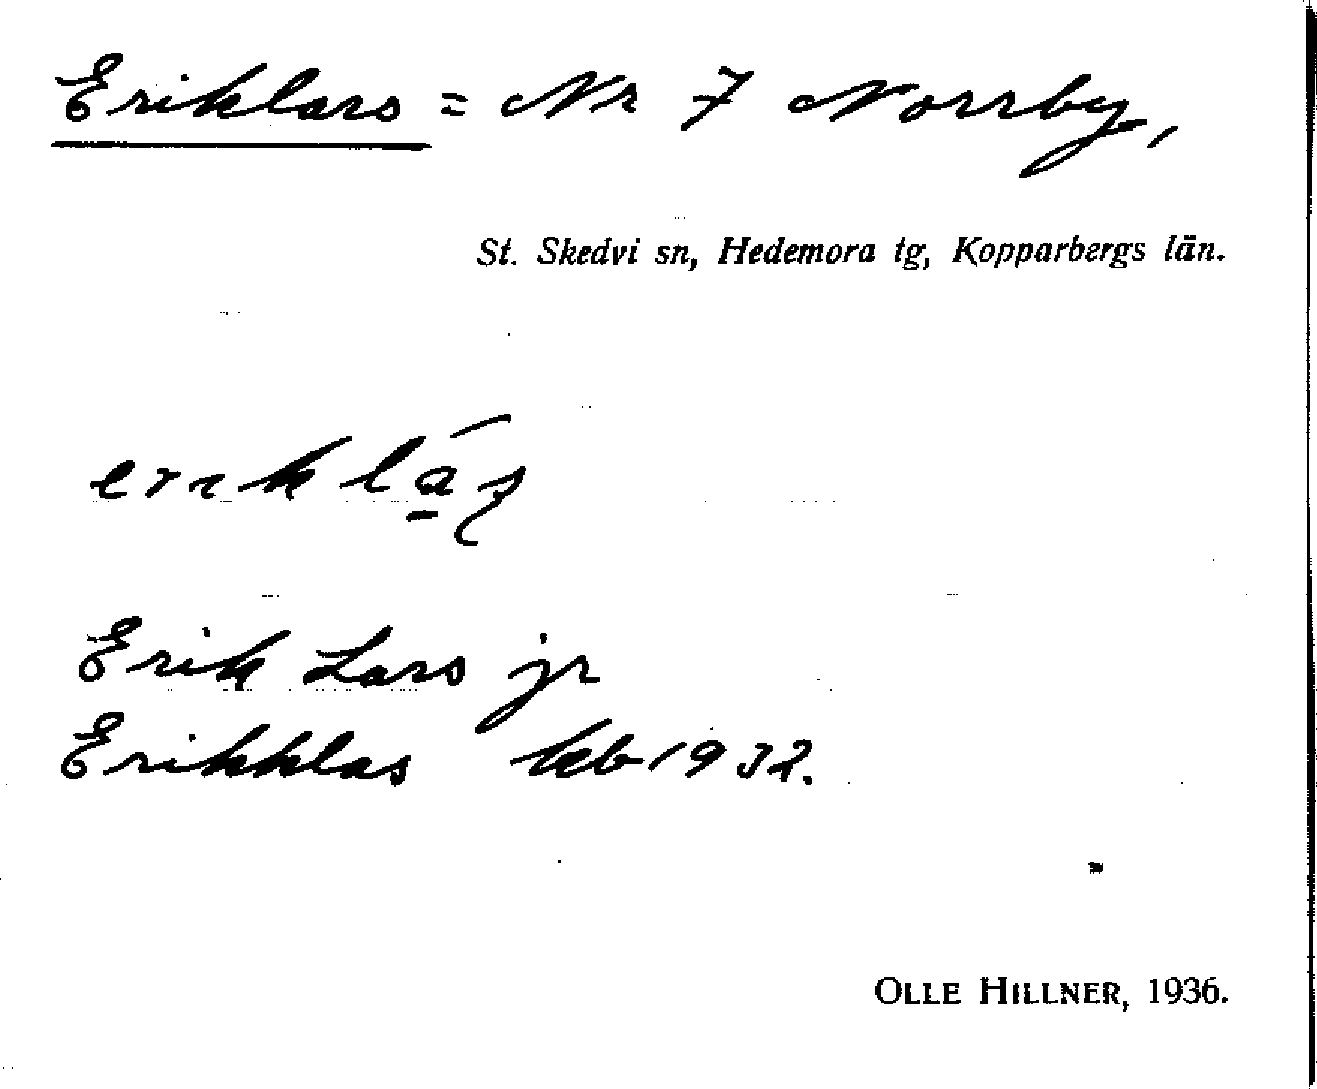 Eriklars = Nr 7 Norrby,
St. Skedvi sn, Hedemora tg, Kopparbergs län.
erik lás
Erik Lars jr
Erikklas kb 1932.
OLLE HILLNER, 1936.